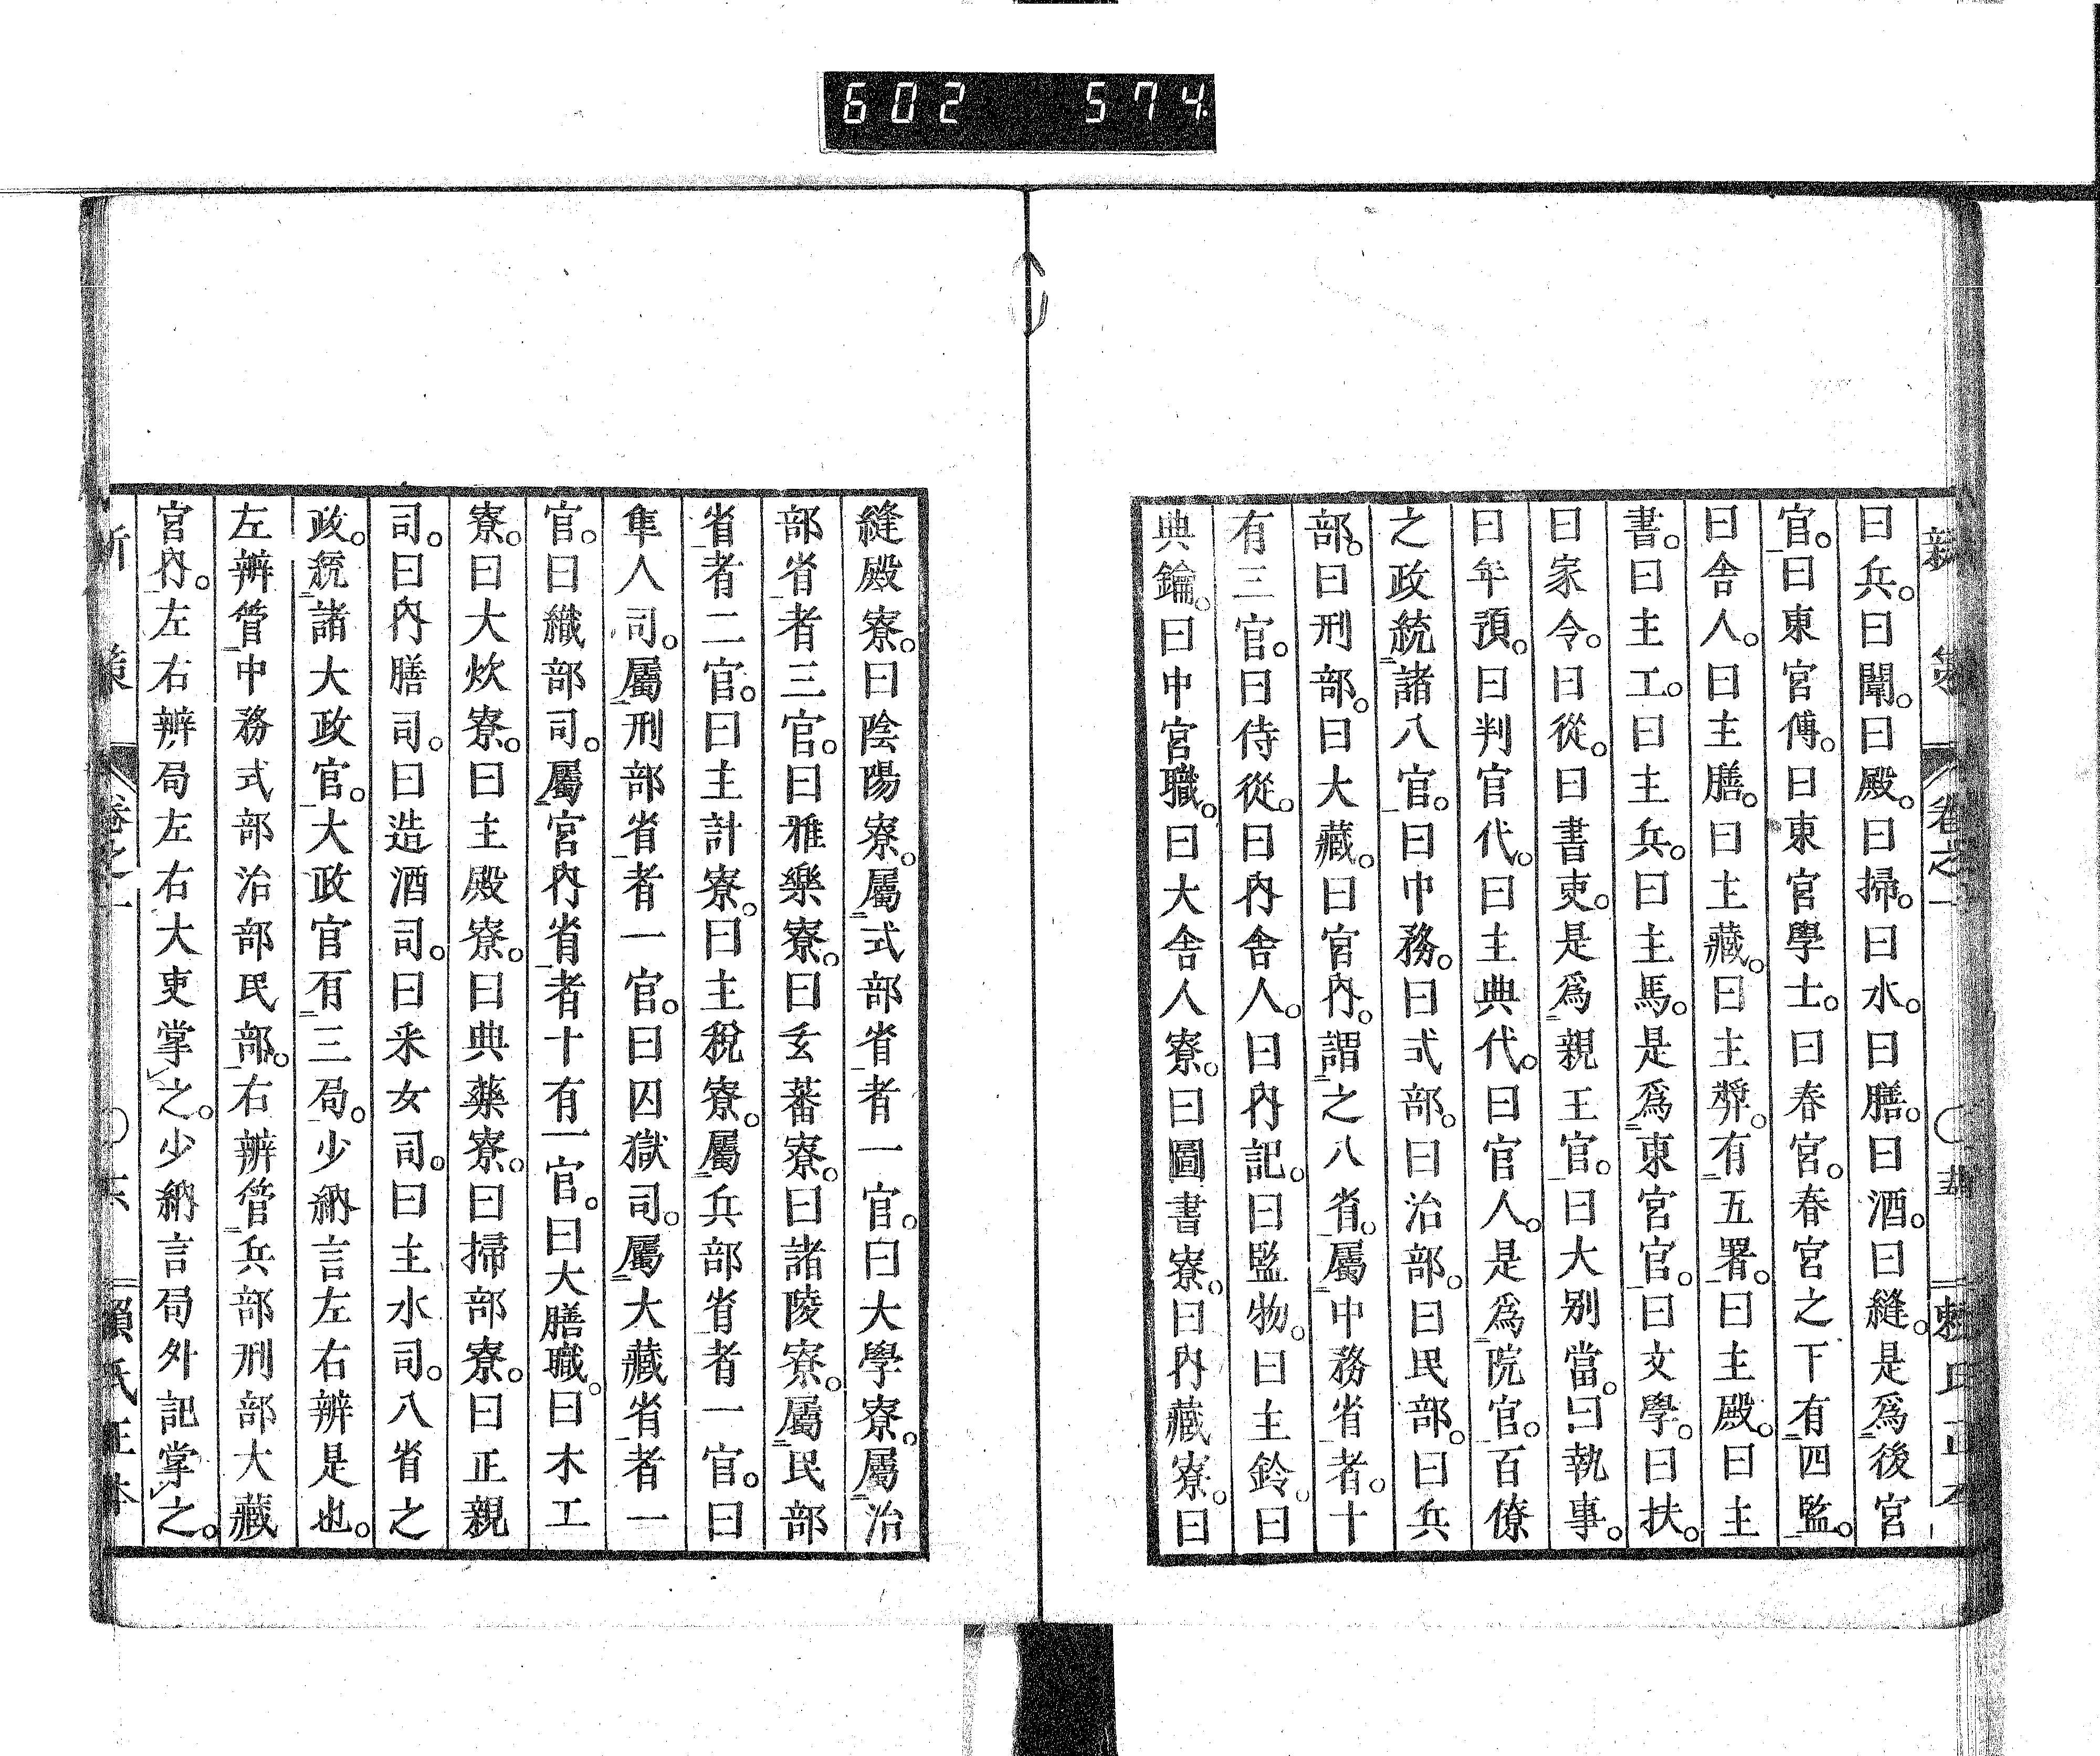 602 574
新策 卷之一 賴氏正本
曰兵。曰闈。曰殿。曰掃。曰水。曰膳。曰酒。曰縫。是爲後宮
官。曰東宮傅。曰東宮學士。曰春宮。春宮之下有四監。
曰舍人。曰主膳。曰主藏。曰主漿。有五署。曰主殿。曰主
書。曰主工。曰主兵。曰主馬。是爲東宮官。曰文學。曰扶。
曰家令。曰從。曰書吏。是爲親王官。曰大別當。曰執事。
曰年預。曰判官代。曰主典代。曰官人。是爲院官。百僚
之政統諸八官。曰中務。曰式部。曰治部。曰民部。曰兵
部。曰刑部。曰大藏。曰宮內。謂之八省。屬中務省者。十
有三官。曰侍從。曰內舍人。曰內記。曰監物。曰主鈴。曰
典鑰。曰中宮職。曰大舍人寮。曰圖書寮。曰內藏寮。曰
縫殿寮。曰陰陽寮。屬式部省者一官。曰大學寮。屬治
部省者三官。曰雅樂寮。曰玄蕃寮。曰諸陵寮。屬民部
省者二官。曰主計寮。曰主稅寮。屬兵部省者一官。曰
隼人司。屬刑部省者一官。曰囚獄司。屬大藏省者一
官。曰織部司。屬宮內省者十有一官。曰大膳職。曰木工
寮。曰大炊寮。曰主殿寮。曰典藥寮。曰掃部寮。曰正親
司。曰內膳司。曰造酒司。曰釆女司。曰主水司。八省之
政。統諸大政官。大政官有三局。少納言左右辨是也。
左辨管中務式部治部民部。右辨管兵部刑部大藏
宮內。左右辨局左右大吏掌之。少納言局外記掌之。
新策 卷之一 〇六 賴氏正本